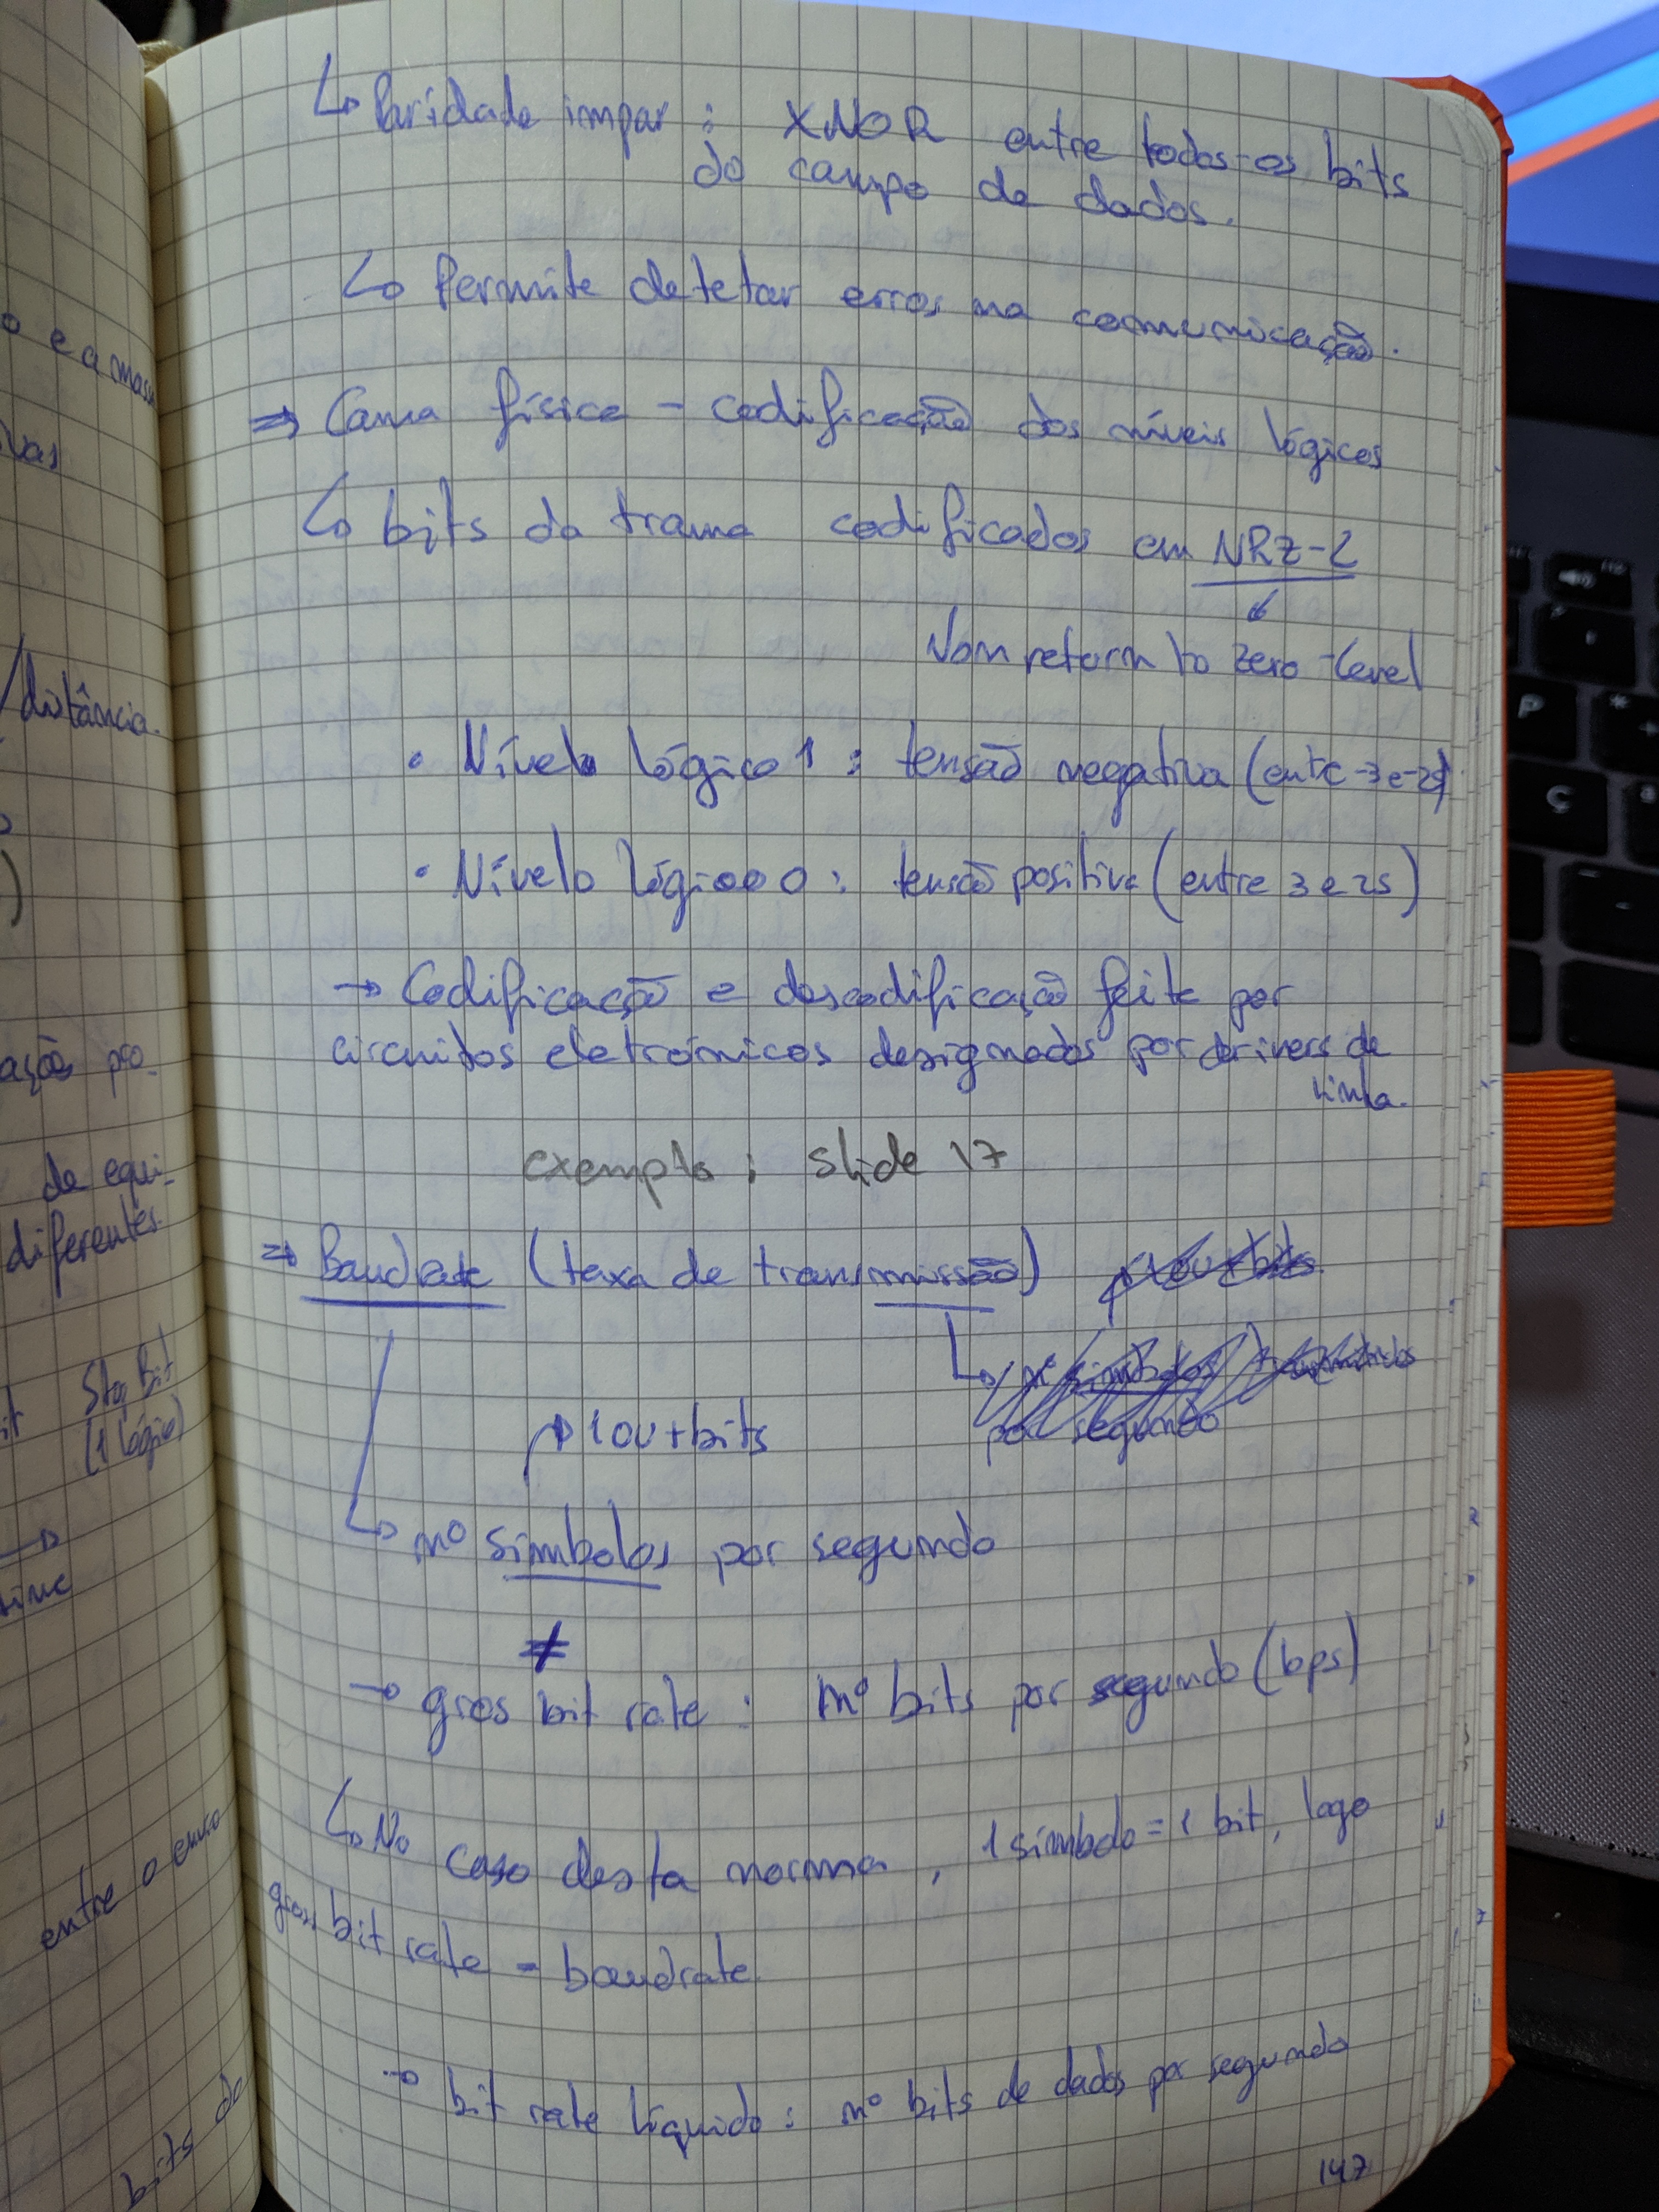 o e a massa
/distância.
ações pro-
de equi-
diferentes.
Stop Bit
(1 lógico)
entre o envio
bits do
↳ Paridade impar : XNOR entre todos os bits
do campo de dados.
↳ Permite detetar erros na comunicação.
⇒ Cama física - codificação dos níveis lógicos
↳ bits da trama codificados em NRZ-L
Non return to zero - Level
• Nível lógico 1 : tensão negativa (entre -3 e -25)
• Nívelo lógico 0 : tensão positiva (entre 3 e 25)
→ Codificação e descodificação feita por
circuitos eletrónicos designados por drivers de
linha.
exemplo : slide 17
⇒ Baudrate (taxa de transmissão)
nº símbolos transmitidos
por segundo
↱ 1 ou + bits
↳ nº símbolos por segundo
≠
→ gros bit rate : nº bits por segundo (bps)
↳ No caso desta norma , 1 símbolo = 1 bit, logo
gross bit rate = baudrate
→ bit rate líquido : nº bits de dados por segundo
147